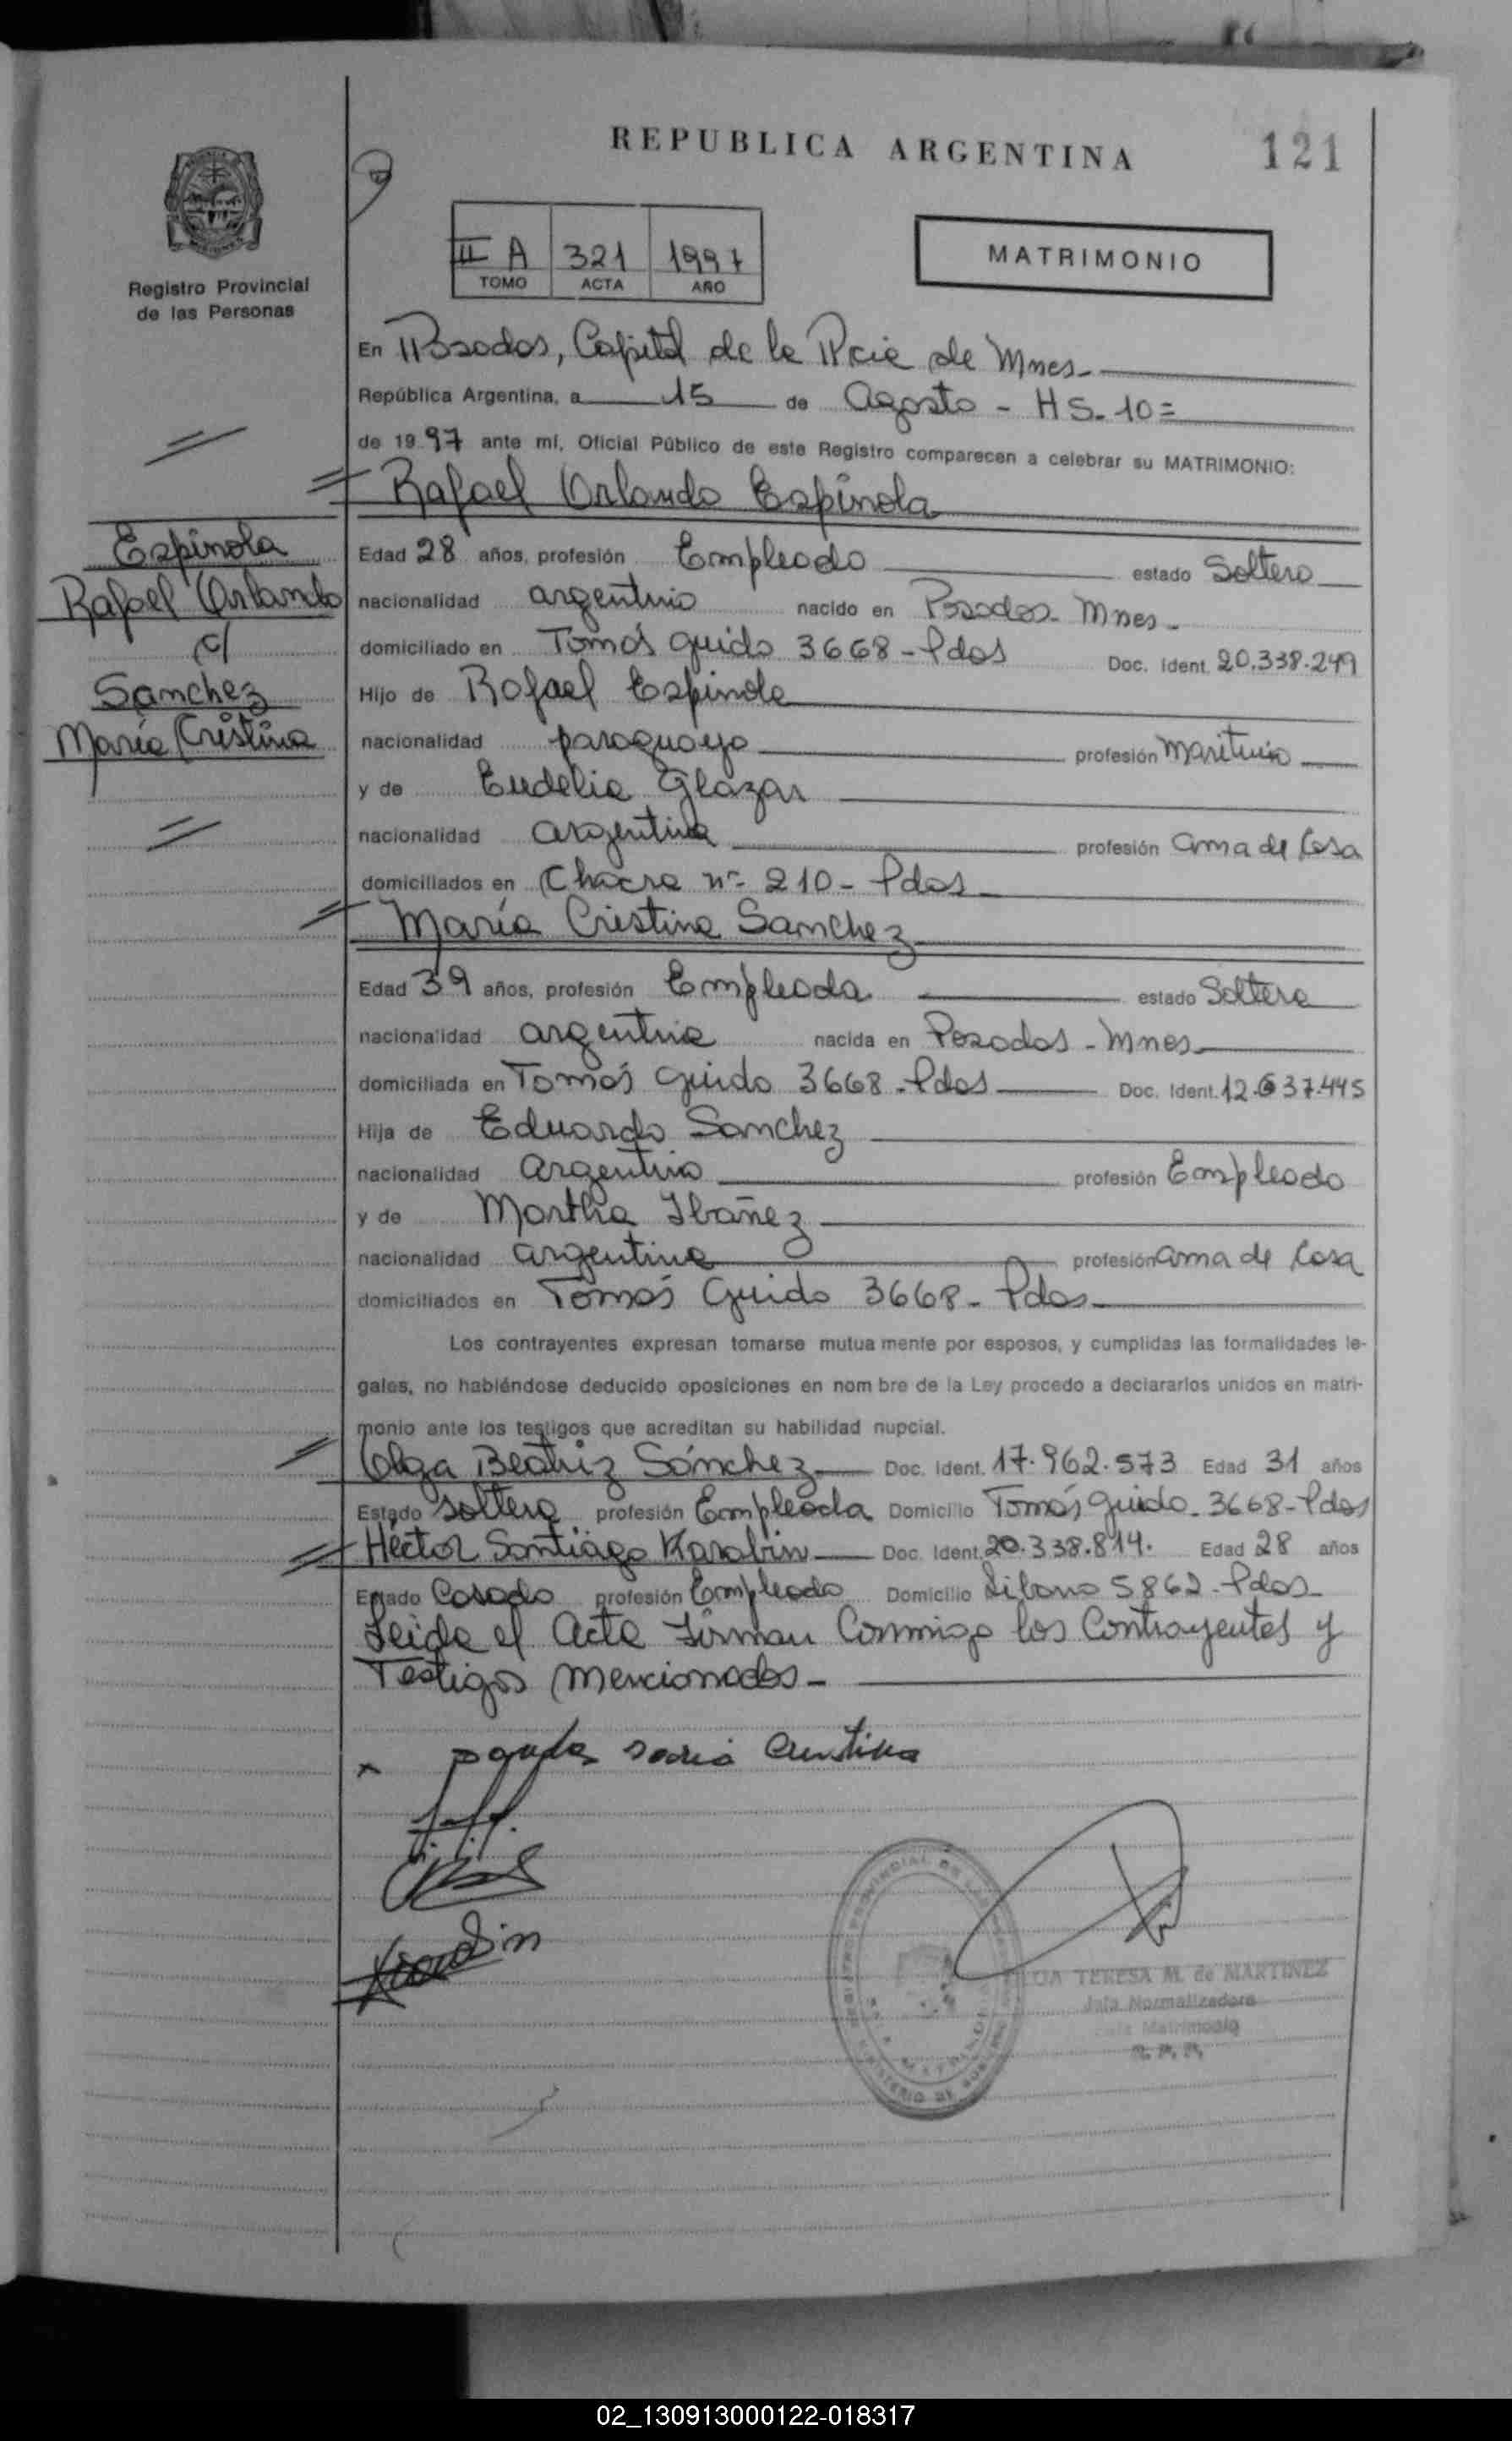 REPUBLICA ARGENTINA
121
Registro Provincial
de las Personas
II A 321 1997
TOMO ACTA AÑO
MATRIMONIO
En Posadas, Capital de la Pcia de Mnes-
República Argentina, a 15 de Agosto - HS- 10=
de 1997 ante mí, Oficial Público de este Registro comparecen a celebrar su MATRIMONIO:
Rafael Orlando Espínola
Espínola
Rafael Orlando
c/
Sanchez
María Cristina
Edad 28 años, profesión Empleado estado Soltero
nacionalidad argentino nacido en Posadas- Mnes-
domiciliado en Tomás Guido 3668-Pdas Doc. Ident. 20.338.249
Hijo de Rafael Espinola
nacionalidad paraguayo profesión Maritimo
y de Eudelia Glazar
nacionalidad argentina profesión ama de Casa
domiciliados en Chacra nº 210- Pdas
María Cristina Sanchez
Edad 39 años, profesión Empleada estado Soltera
nacionalidad argentina nacida en Posadas - Mnes
domiciliada en Tomás Guido 3668-Pdas Doc. Ident. 12.637.445
Hija de Eduardo Sanchez
nacionalidad Argentino profesión Empleado
y de Martha Ibañez
nacionalidad argentina profesión ama de Casa
domiciliados en Tomás Guido 3668- Pdas
Los contrayentes expresan tomarse mutua mente por esposos, y cumplidas las formalidades le-
gales, no habiéndose deducido oposiciones en nom bre de la Ley procedo a declararlos unidos en matri-
monio ante los testigos que acreditan su habilidad nupcial.
Olga Beatriz Sánchez Doc. Ident. 17.962.573 Edad 31 años
Estado soltera profesión Empleada Domicilio Tomás Guido 3668-Pdas
Héctor Santiago Karabin Doc. Ident. 20.338.814. Edad 28 años
Estado Casado profesión Empleado Domicilio Libano 5862-Pdas-
Leida el Acta Firman Conmigo los Contrayentes y
Testigos Mencionados-
TERESA M. de MARTINEZ
Jefa Normalizadora
Matrimonio
R. P. P.
02_130913000122-018317